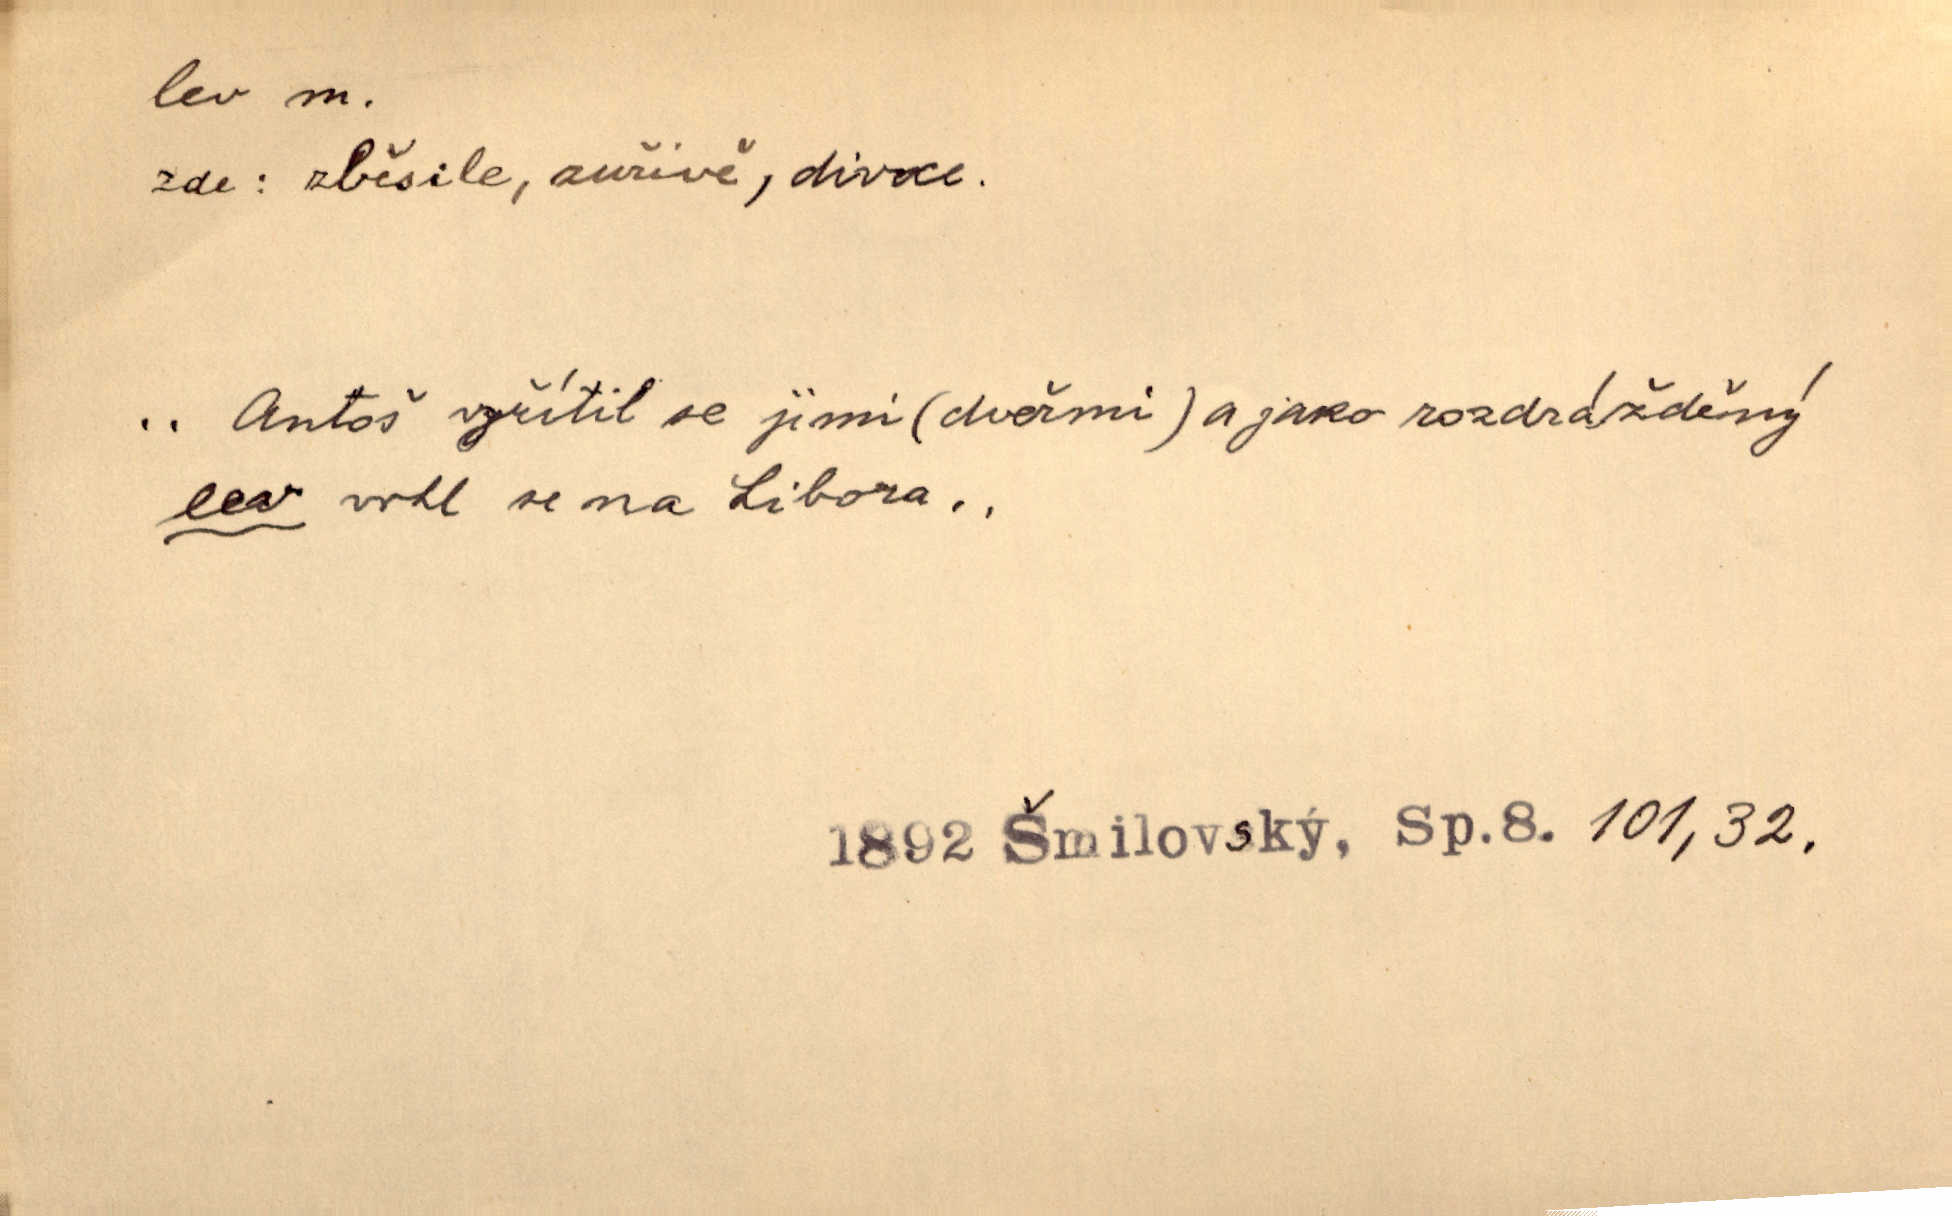 lev m.
zde: zběsile, zuřivě, divoce.
.. Antoš vyřítil se jimi (dveřmi) a jako rozdrážděný
lev vrhl se na Libora..
1892 Šmilovský, Sp.8. 101,32.